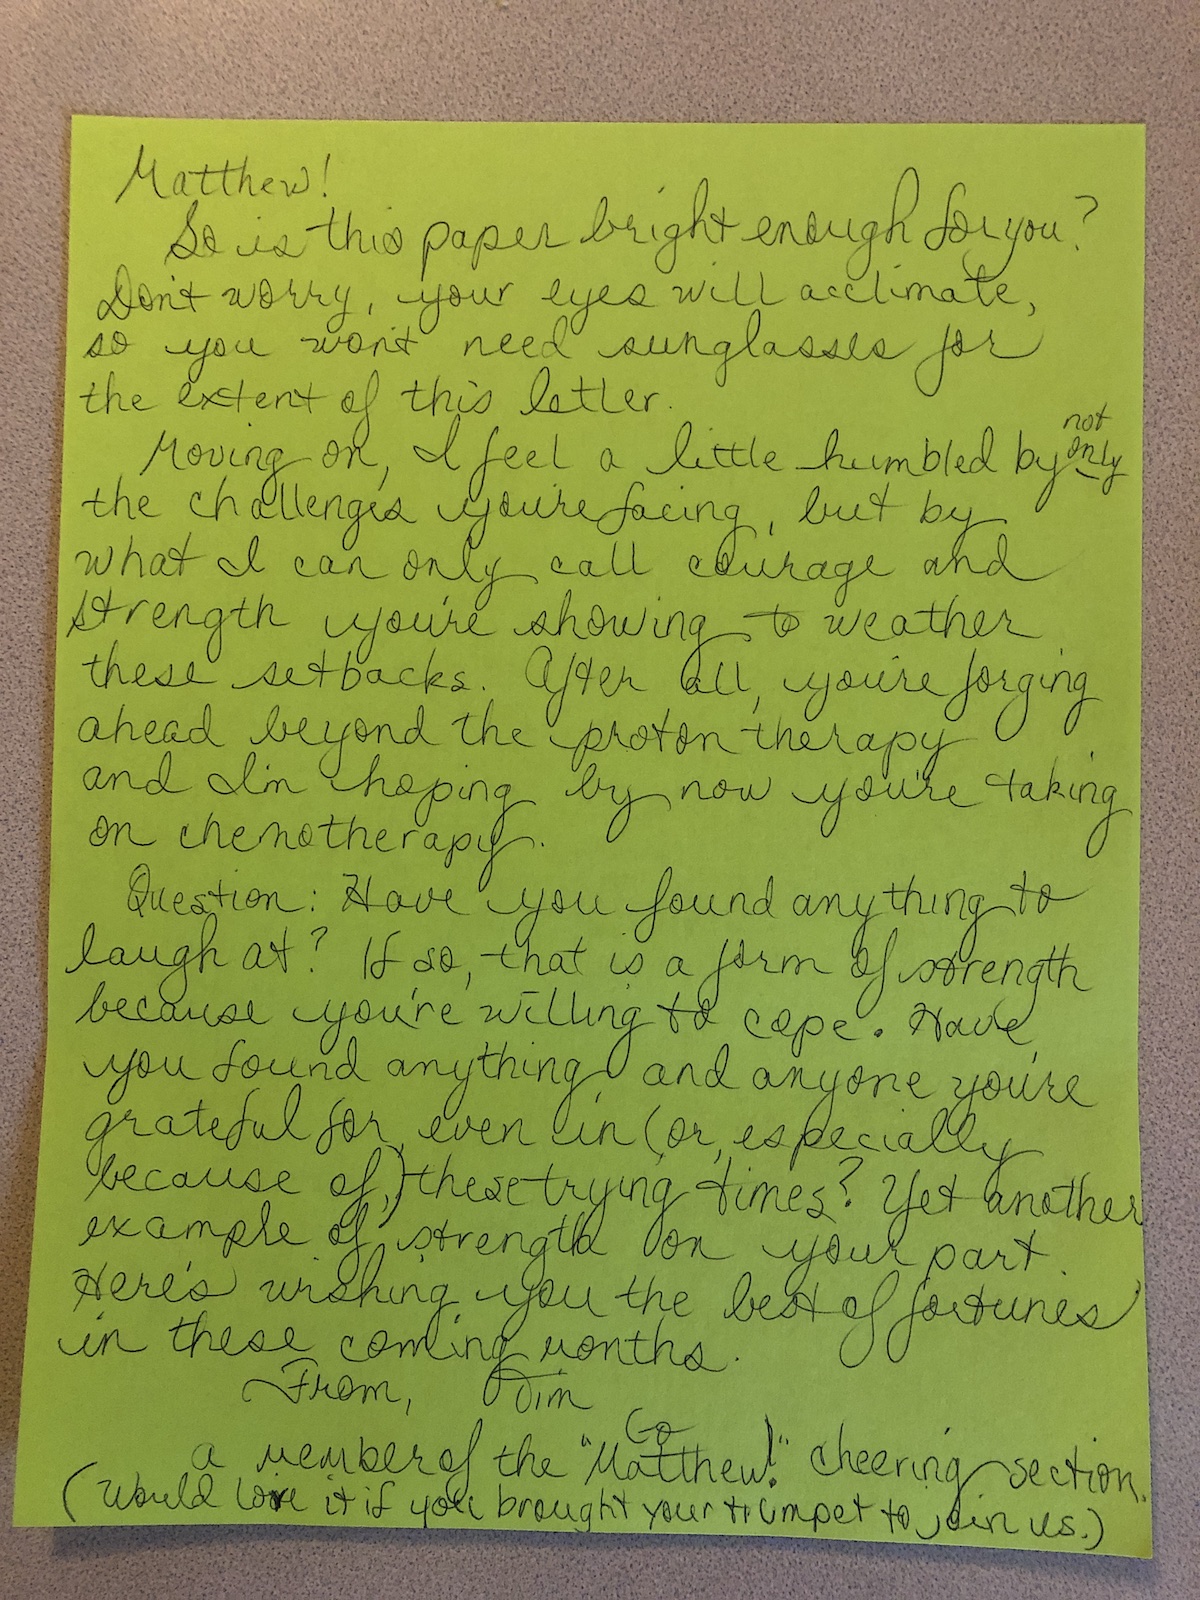 Matthew!
So is this paper bright enough for you?
Don't worry, your eyes will acclimate,
so you won't need sunglasses for
the extent of this letter.
Moving on, I feel a little humbled by not only
the challenges you're facing, but by
what I can only call courage and
strength you're showing to weather
these setbacks. After all, you're forging
ahead beyond the proton therapy
and I'm hoping by now you're taking
on chemotherapy.
Question: Have you found anything to
laugh at? If so, that is a form of strength
because you're willing to cope. Have
you found anything and anyone you're
grateful for, even in (or, especially
because of,) these trying times? Yet another
example of strength on your part.
Here's wishing you the best of fortunes
in these coming months.
From, Tim
a member of the "Go Matthew!" cheering section.
(Would love it if you brought your trumpet to join us.)